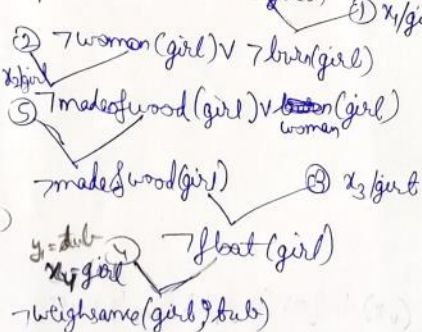 ① x₁/gi
② ¬woman(girl) ∨ ¬burn(girl)
x₂/girl
⑤ ¬madeofwood(girl) ∨ (girl)
woman
¬madeofwood(girl) ③ x₃/girl
y₁=tub ④ ¬float(girl)
x₄=girl
¬weighsame(girl, tub)